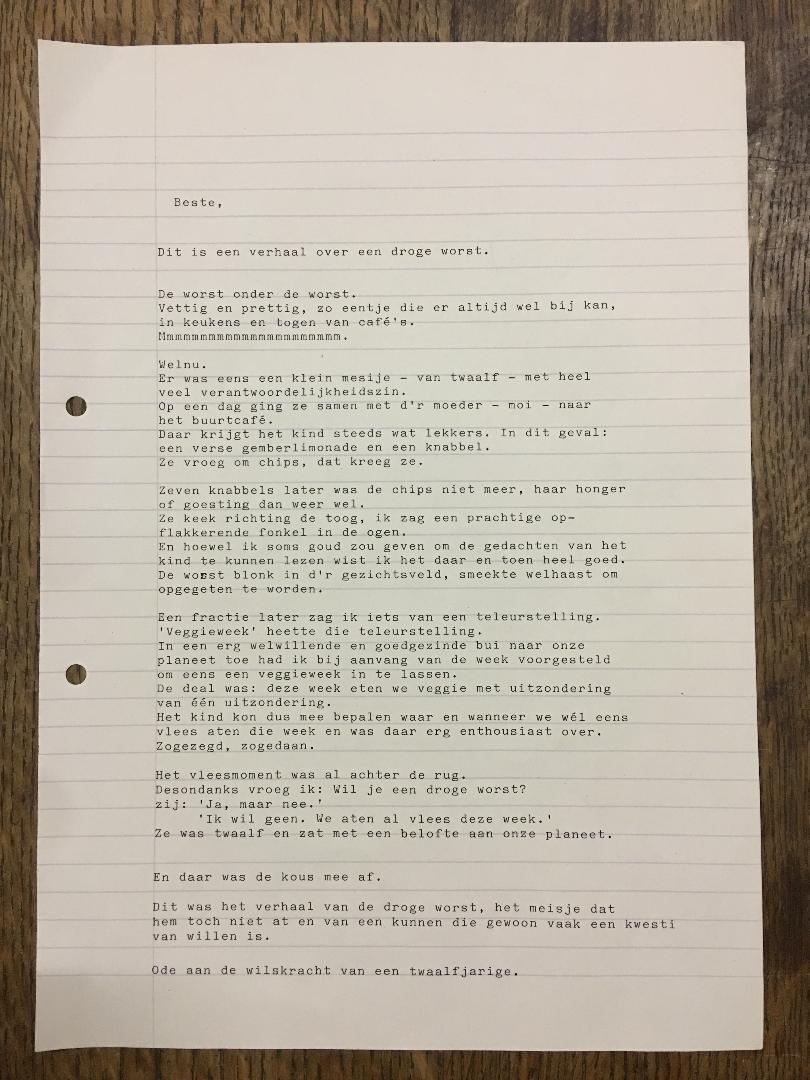 Beste,
Dit is een verhaal over een droge worst.
De worst onder de worst.
Vettig en prettig, zo eentje die er altijd wel bij kan,
in keukens en togen van café's.
Mmmmmmmmmmmmmmmmmmmmmm.
Welnu.
Er was eens een klein mesije - van twaalf - met heel
veel verantwoordelijkheidszin.
Op een dag ging ze samen met d'r moeder - moi - naar
het buurtcafé.
Daar krijgt het kind steeds wat lekkers. In dit geval:
een verse gemberlimonade en een knabbel.
Ze vroeg om chips, dat kreeg ze.
Zeven knabbels later was de chips niet meer, haar honger
of goesting dan weer wel.
Ze keek richting de toog, ik zag een prachtige op-
flakkerende fonkel in de ogen.
En hoewel ik soms goud zou geven om de gedachten van het
kind te kunnen lezen wist ik het daar en toen heel goed.
De worst blonk in d'r gezichtsveld, smeekte welhaast om
opgegeten te worden.
Een fractie later zag ik iets van een teleurstelling.
'Veggieweek' heette die teleurstelling.
In een erg welwillende en goedgezinde bui naar onze
planeet toe had ik bij aanvang van de week voorgesteld
om eens een veggieweek in te lassen.
De deal was: deze week eten we veggie met uitzondering
van één uitzondering.
Het kind kon dus mee bepalen waar en wanneer we wél eens
vlees aten die week en was daar erg enthousiast over.
Zogezegd, zogedaan.
Het vleesmoment was al achter de rug.
Desondanks vroeg ik: Wil je een droge worst?
zij: 'Ja, maar nee.'
'Ik wil geen. We aten al vlees deze week.'
Ze was twaalf en zat met een belofte aan onze planeet.
En daar was de kous mee af.
Dit was het verhaal van de droge worst, het meisje dat
hem toch niet at en van een kunnen die gewoon vaak een kwesti
van willen is.
Ode aan de wilskracht van een twaalfjarige.